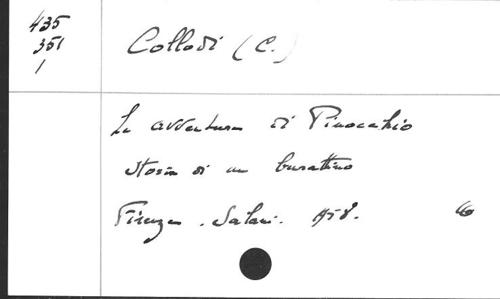 435
351
1
Collodi (C.)
Le avventure di Pinocchio
storia di un burattino
Firenze. Salani. 1958.